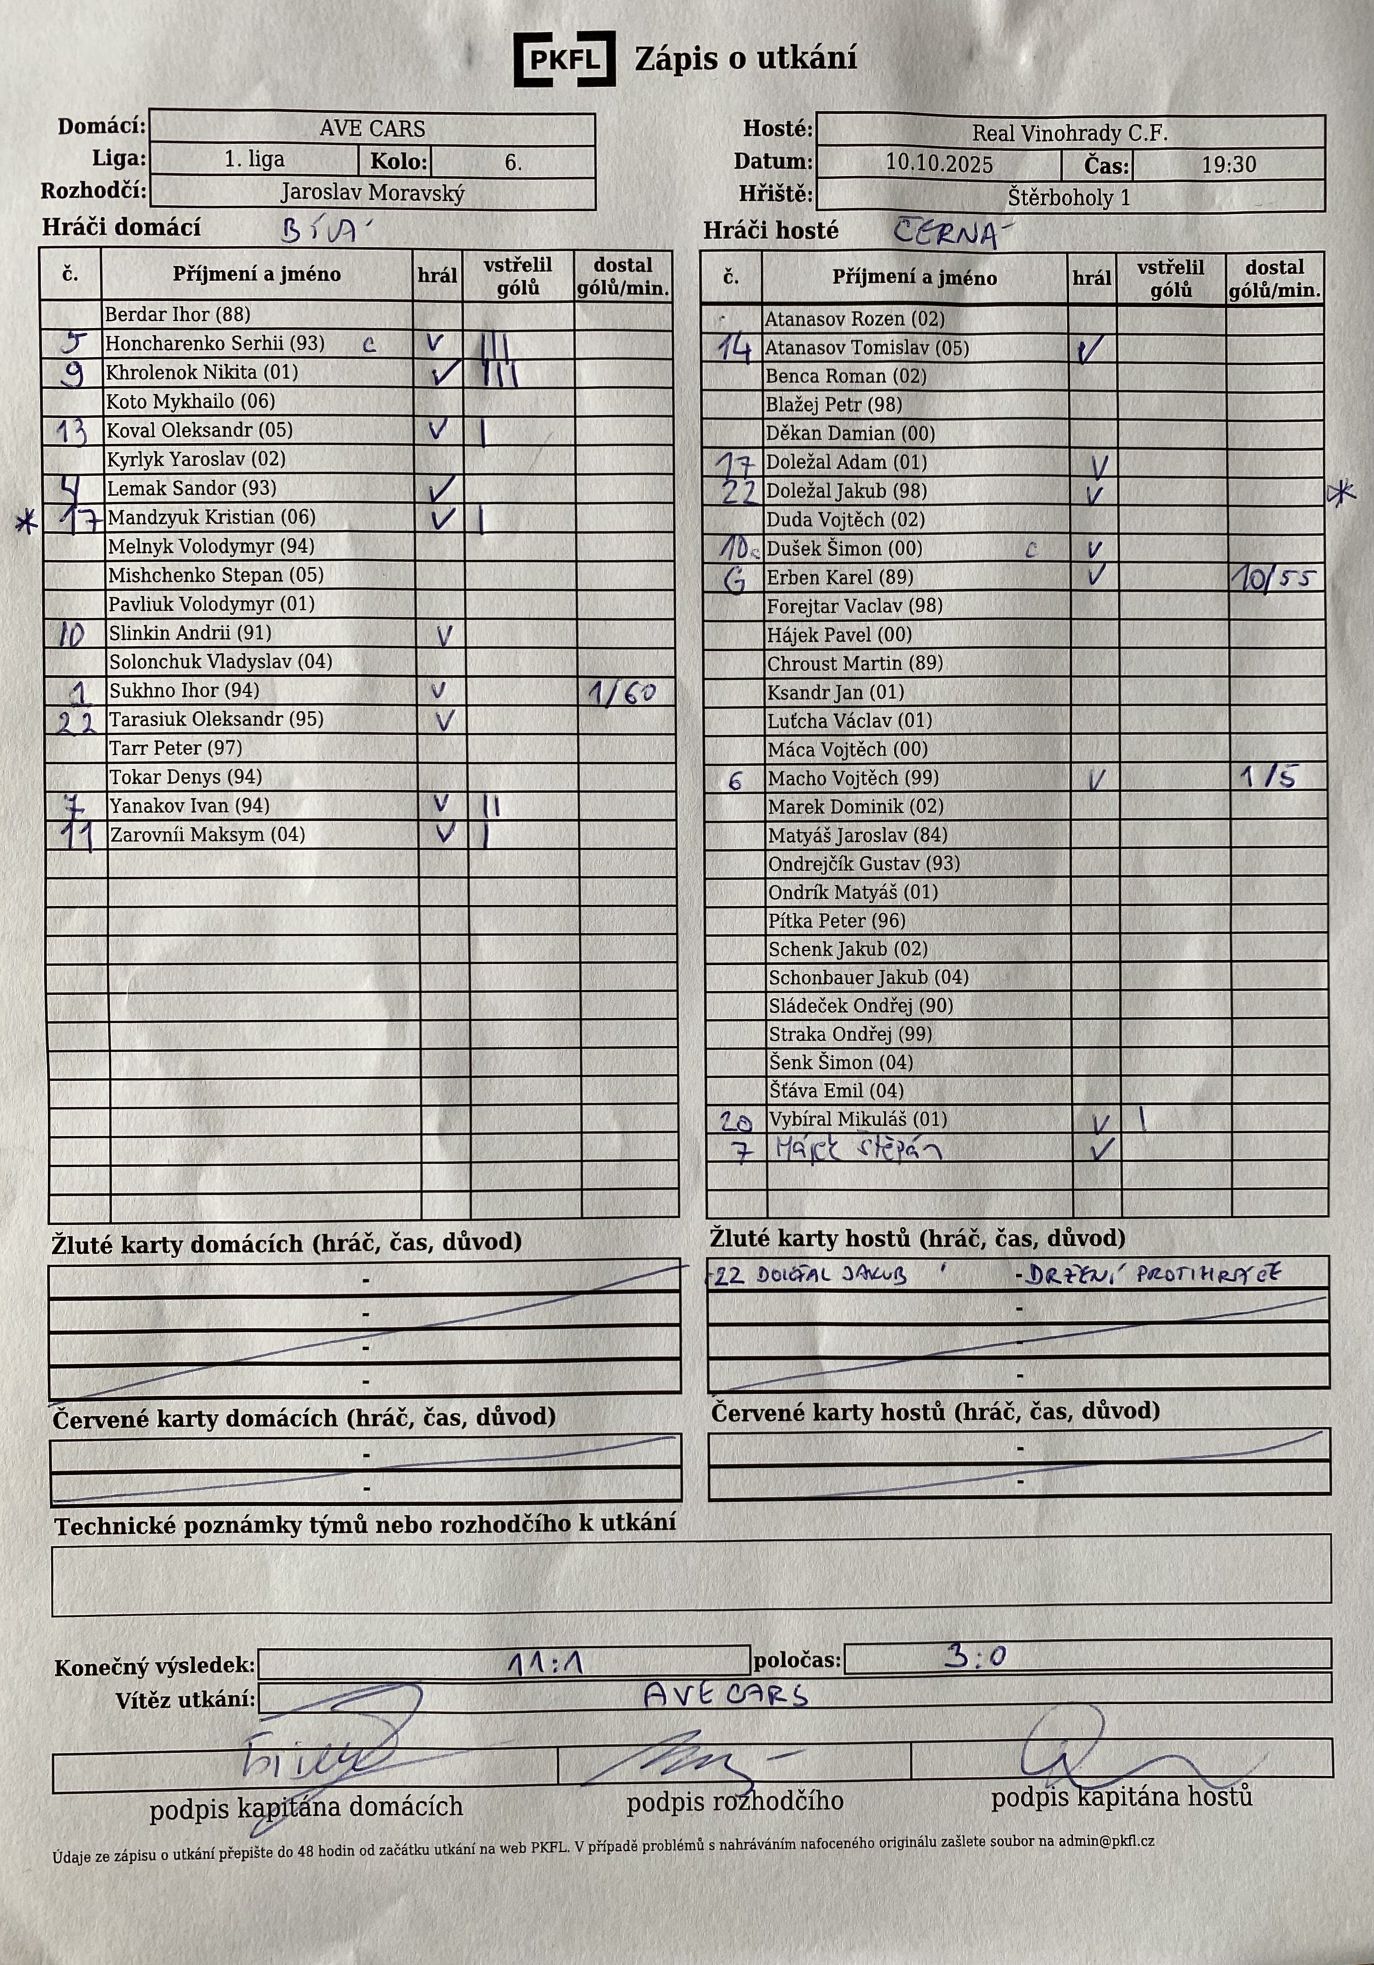 PKFL Zápis o utkání
Domácí: AVE CARS
Liga: 1. liga Kolo: 6.
Rozhodčí: Jaroslav Moravský
Hosté: Real Vinohrady C.F.
Datum: 10.10.2025 Čas: 19:30
Hřiště: Štěrboholy 1
Hráči domácí BÍLÁ
č. Příjmení a jméno hrál vstřelil gólů dostal gólů/min.
Berdar Ihor (88)
5 Honcharenko Serhii (93) c V |||
9 Khrolenok Nikita (01) V |||
Koto Mykhailo (06)
13 Koval Oleksandr (05) V |
Kyrlyk Yaroslav (02)
4 Lemak Sandor (93) V
* 17 Mandzyuk Kristian (06) V |
Melnyk Volodymyr (94)
Mishchenko Stepan (05)
Pavliuk Volodymyr (01)
10 Slinkin Andrii (91) V
Solonchuk Vladyslav (04)
1 Sukhno Ihor (94) V 1/60
22 Tarasiuk Oleksandr (95) V
Tarr Peter (97)
Tokar Denys (94)
7 Yanakov Ivan (94) V ||
11 Zarovnii Maksym (04) V |
Hráči hosté ČERNÁ
č. Příjmení a jméno hrál vstřelil gólů dostal gólů/min.
Atanasov Rozen (02)
14 Atanasov Tomislav (05) V
Benca Roman (02)
Blažej Petr (98)
Děkan Damian (00)
17 Doležal Adam (01) V
22 Doležal Jakub (98) V *
Duda Vojtěch (02)
10c Dušek Šimon (00) c V
G Erben Karel (89) V 10/55
Forejtar Vaclav (98)
Hájek Pavel (00)
Chroust Martin (89)
Ksandr Jan (01)
Luťcha Václav (01)
Máca Vojtěch (00)
6 Macho Vojtěch (99) V 1/5
Marek Dominik (02)
Matyáš Jaroslav (84)
Ondrejčík Gustav (93)
Ondrík Matyáš (01)
Pítka Peter (96)
Schenk Jakub (02)
Schonbauer Jakub (04)
Sládeček Ondřej (90)
Straka Ondřej (99)
Šenk Šimon (04)
Šťáva Emil (04)
20 Vybíral Mikuláš (01) V |
7 Hájek Štěpán V
Žluté karty domácích (hráč, čas, důvod)
-
-
-
-
Žluté karty hostů (hráč, čas, důvod)
22 DOLEŽAL JAKUB ' - DRŽENÍ PROTIHRÁČE
-
-
-
Červené karty domácích (hráč, čas, důvod)
-
-
Červené karty hostů (hráč, čas, důvod)
-
-
Technické poznámky týmů nebo rozhodčího k utkání
Konečný výsledek: 11:1 poločas: 3:0
Vítěz utkání: AVE CARS
podpis kapitána domácích podpis rozhodčího podpis kapitána hostů
Údaje ze zápisu o utkání přepište do 48 hodin od začátku utkání na web PKFL. V případě problémů s nahráváním nafoceného originálu zašlete soubor na admin@pkfl.cz